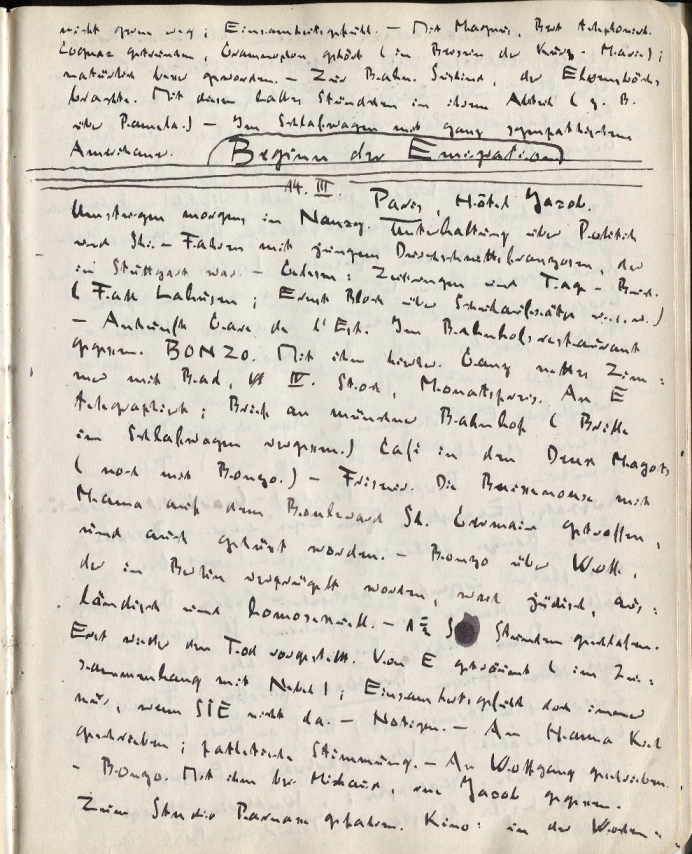 nicht gern weg; Einsamkeitsgefühl. – Mit Magnus, Bert telephonirt.
Cognac getrunken, Grammophon gehört (in Beisein der Kurz-Marie);
natürlich besser geworden. – Zur Bahn. Süskind, der Ebenwörts
brachte. Mit diesem halbes Stündchen in ihrem Abteil (z. B.
über Pamela.) – Im Schlafwagen mit ganz sympathischem
Amerikaner. Beginn der Emigration
14. III. Paris, Hôtel Jacob.
Umsteigen morgens in Nanzy. Unterhaltung über Politik
und Ski-Fahren mit jungem Durchschnittsfranzosen, der
in Stuttgart war. – Gelesen: Zeitungen und Tag-Buch.
(Fall Lahusen; Ernst Bloch über u.s.w.)
– Ankunft Gare de l'Est. Im Bahnhofsrestaurant
gegessen. BONZO. Mit ihm hierher. Ganz nettes Zim-
mer mit Bad, IV. Stock, Monatspreis. An E
telegraphiert; Brief an münchner Bahnhof (Brille
im Schlafwagen vergessen.) Café in den Deux Magots
(noch mit Bonzo.) – Friseur. Die mit
Mama auf dem Boulevard St. Germain getroffen,
und auch geküsst worden. – Bonzo über Wolf,
der in Berlin verprügelt worden, weil jüdisch, aus-
ländisch und homosexuell. – 1½ Stunden geschlafen.
Erst wieder den Tod vorgestellt. Von E geträumt (im Zu-
sammenhang mit Nebel); Einsamkeitsgefühl doch immer
nur, wenn SIE nicht da. – Notizen. – An Hanna Kiel
geschrieben; pathetische Stimmung. – An Wolfgang geschrieben.
– Bonzo. Mit ihm bei Michaud, rue Jacob gegessen.
Zum Studio Parnass gefahren. Kino: in der Wochen-